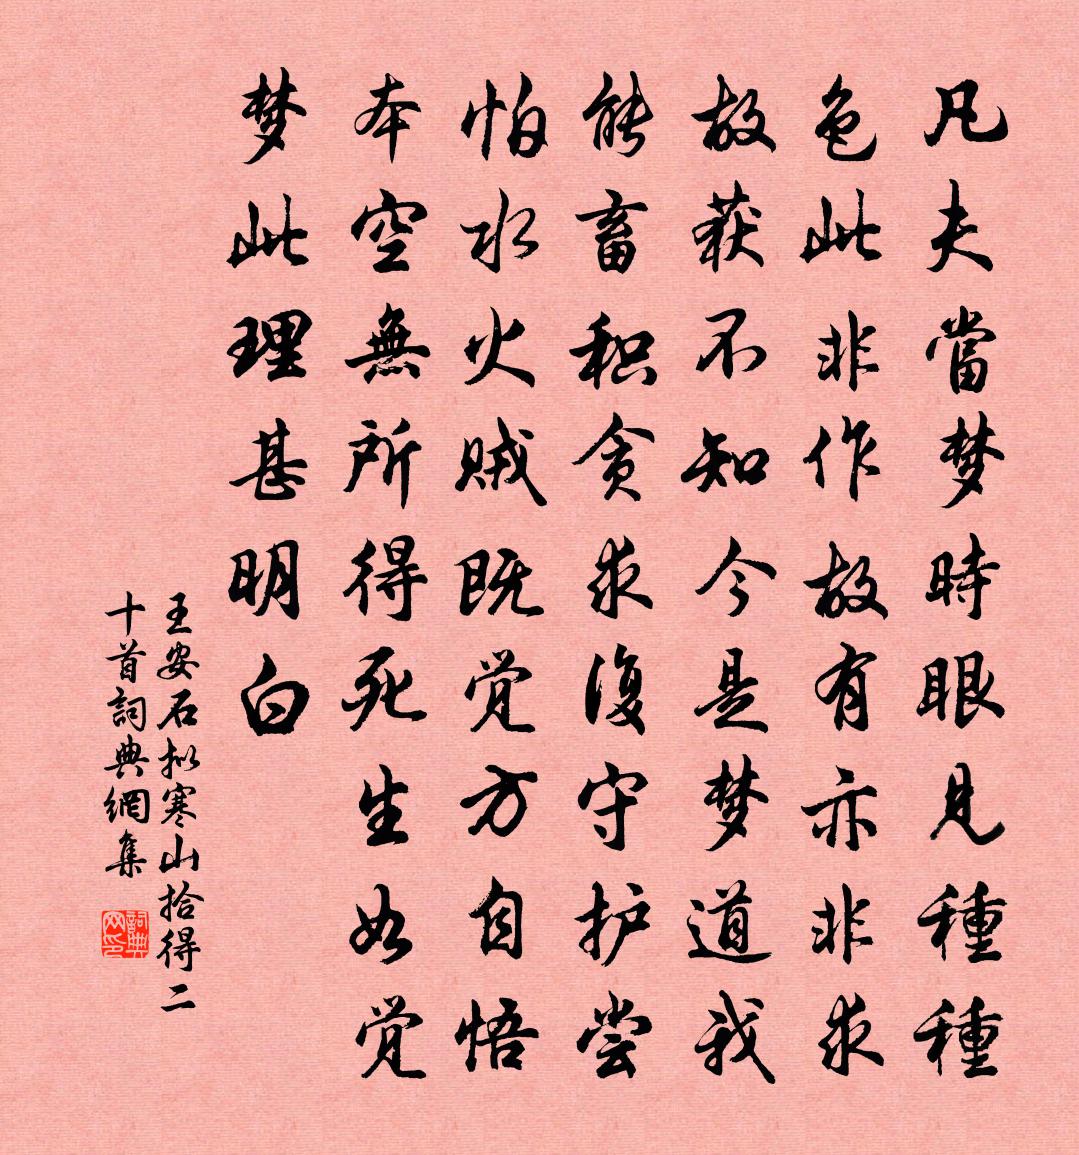 凡夫當梦時眼見種種
色此非作故有亦非求
故获不知今是梦道我
能畜积贪求復守护尝
怕水火贼既觉方自悟
本空無所得死生如觉
梦此理甚明白
王安石拟寒山拾得二
十首詞典網集
詞典
网印